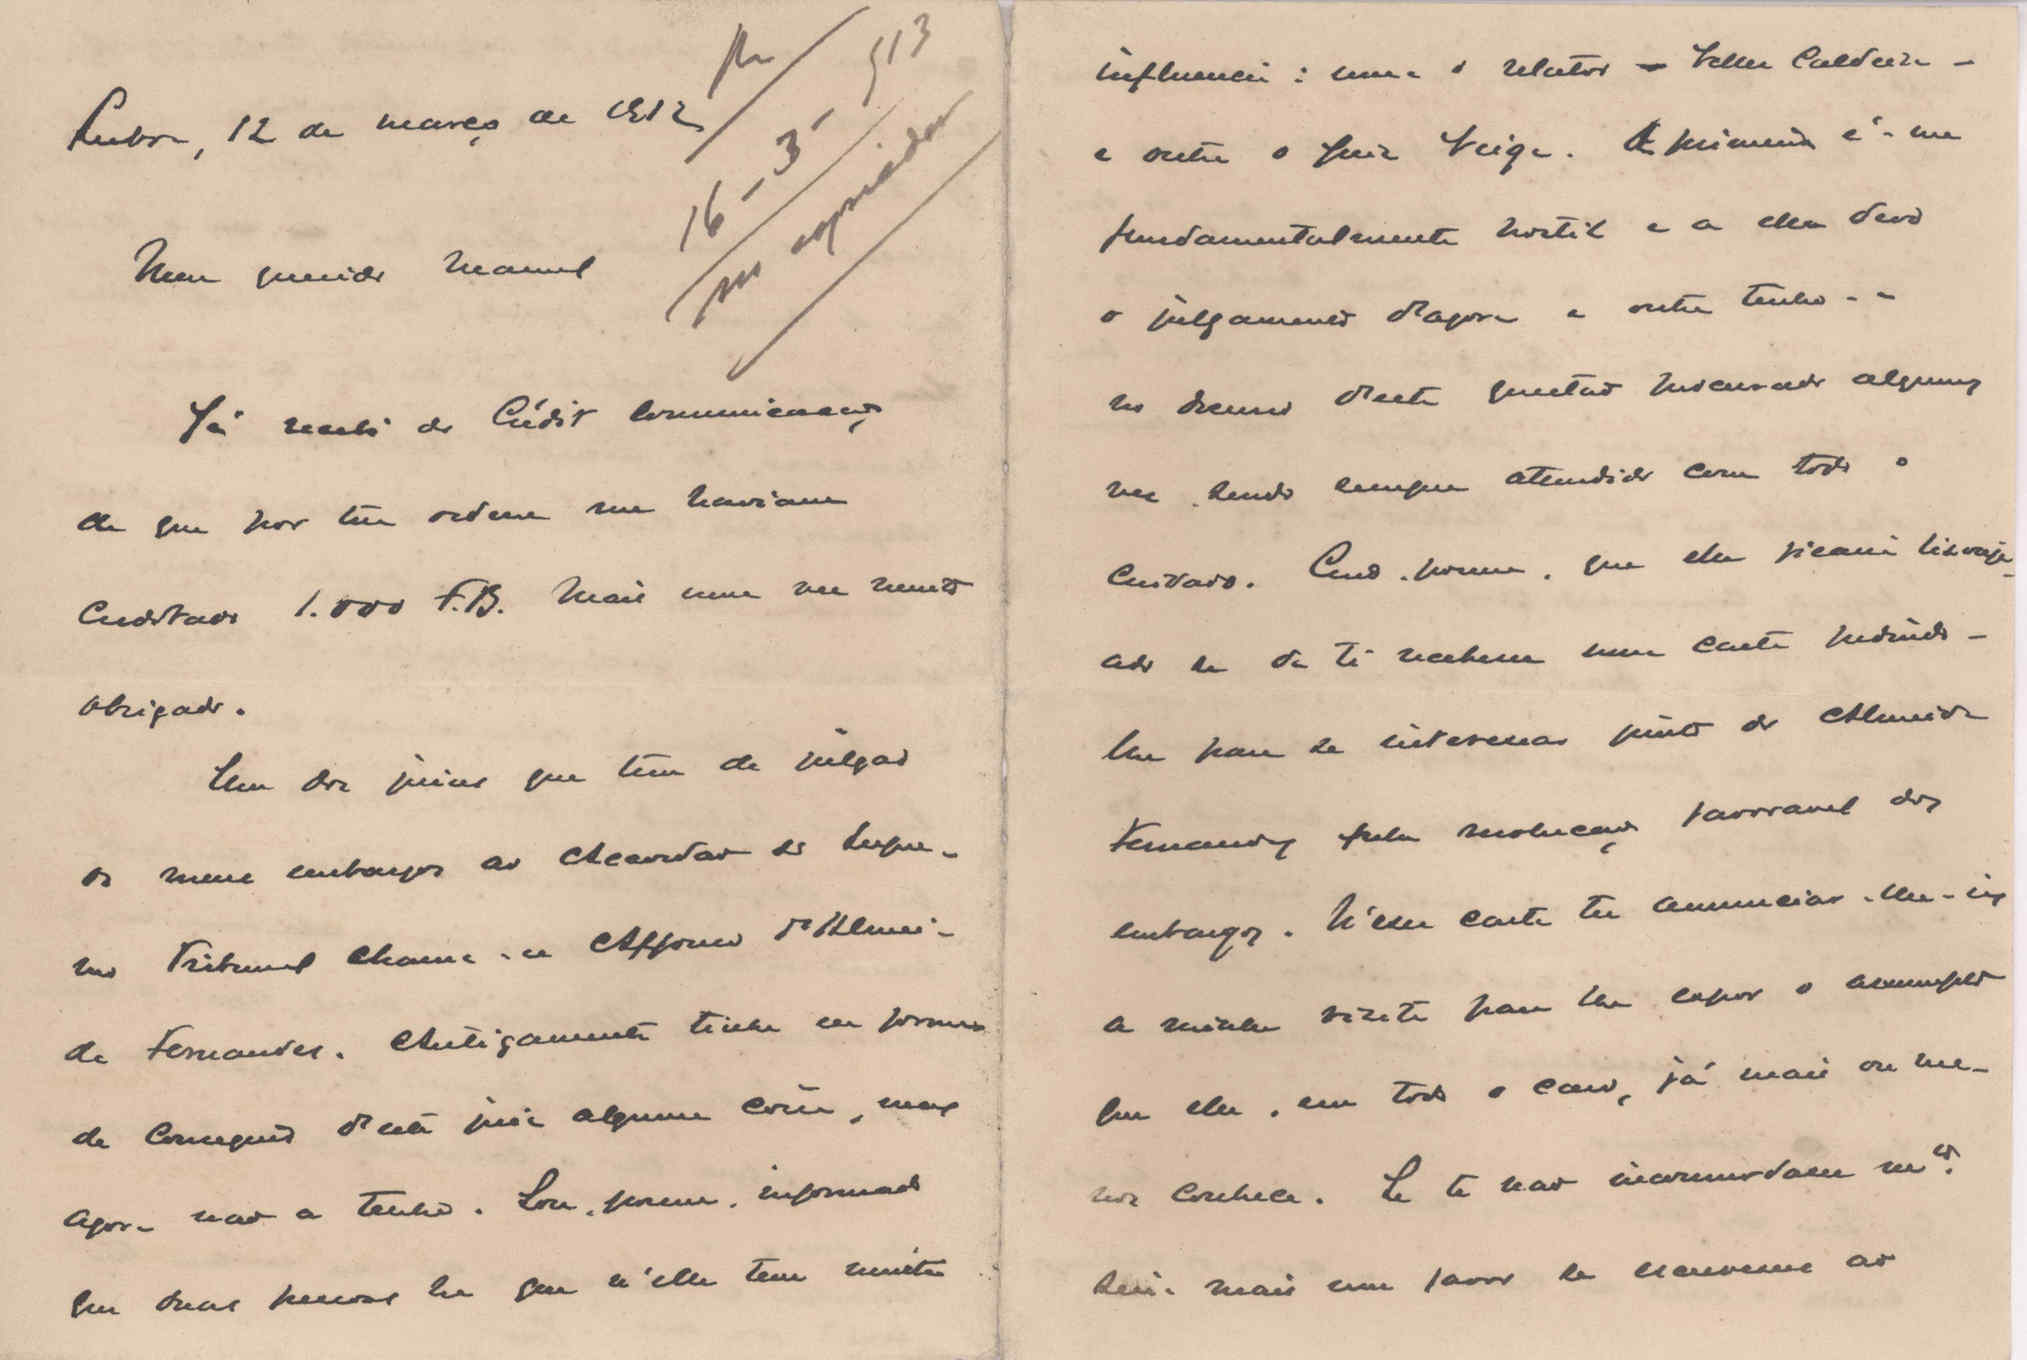 Lisboa, 12 de março de 1912
R
16-3-913
Meu querido Manuel
Já recebi do Crédit communicação
de que por tua ordem me haviam
creditado 1.000 F.B. Mais uma vez muito
obrigado.
Um dos juizes que tem de julgar
os meus embargos ao Accordão do Supre-
mo Tribunal chama-se Affonso d'Almei-
da Fernandes. Antigamente tinha eu forma
de conseguir d'este juiz alguma coisa, mas
agora não a tenho. Sou, porem, informado
que duas pessoas ha que n'elle tem muita
influencia: uma o relator - Telles Caldeira -
e outra o Juiz Veiga. A primeira é-me
fundamentalmente hostil e a ella devo
o julgamento d'agora e outra tenho-a
no decurso d'esta questão procurado alguma
vez sendo sempre atendido com todo o
cuidado. Creio, porem, que elle ficaria lisonge-
ado se de ti recebesse uma carta pedindo-
lhe para se interessar junto do Almeida
Fernandes pela resolução favoravel dos
embargos. N'essa carta tu annunciar-lhe-ias
a minha visita para lhe expor o assumpto
que elle, em todo o caso, já mais ou me-
nos conhece. Se te não incommodasse m.to
seria mais um favor se escrevesses ao